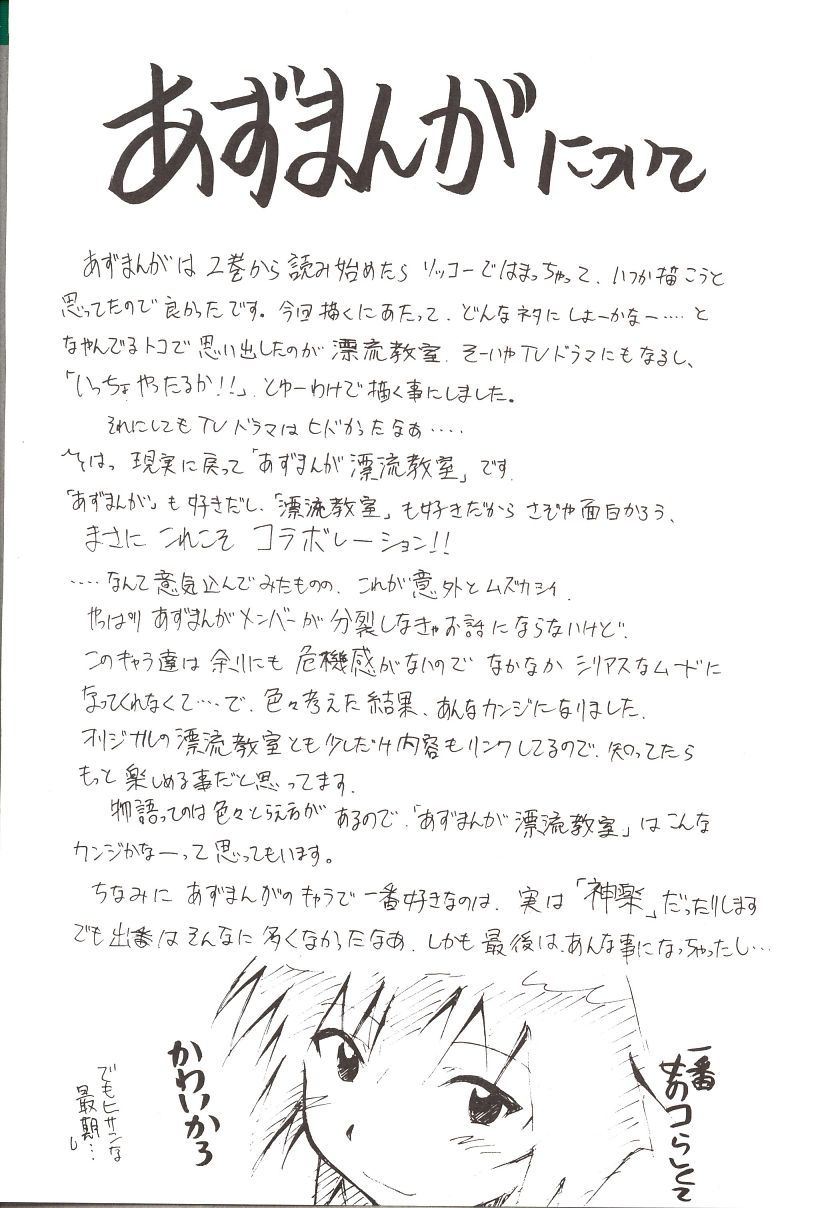 あずまんがについて
あずまんがは2巻から読み始めたらソッコーではまっちゃって、いつか描こうと
思ってたので良かったです。今回描くにあたって、どんなネタにしよーかなー‥‥と
なやんでるトコで思い出したのが漂流教室、そーいやTVドラマにもなるし、
「いっちょやったるか!!」、とゆーわけで描く事にしました。
それにしてもTVドラマはヒドかったなぁ‥‥
現実に戻って「あずまんが漂流教室」です、
「あずまんが」も好きだし、「漂流教室」も好きだからさぞや面白かろう、
まさにこれこそコラボレーション!!
‥‥なんて意気込んでみたものの、これが意外とムズカシイ、
やっぱりあずまんがメンバーが分裂しなきゃお話にならないけど、
このキャラ達は余りにも危機感がないのでなかなかシリアスなムードに
なってくれなくて‥‥で、色々考えた結果、あんなカンジになりました、
オリジナルの漂流教室とも少しだけ内容もリンクしてるので、知ってたら
もっと楽しめる事だと思ってます、
物語ってのは色々とらえ方があるので、「あずまんが漂流教室」はこんな
カンジかなーって思ってもいます。
ちなみにあずまんがのキャラで一番好きなのは、実は「神楽」だったりします
でも出番はそんなに多くなかったなぁ、しかも最後は、あんな事になっちゃったし…
一番
女のコらしくて
かわいかろ
でもヒサンな
最期…